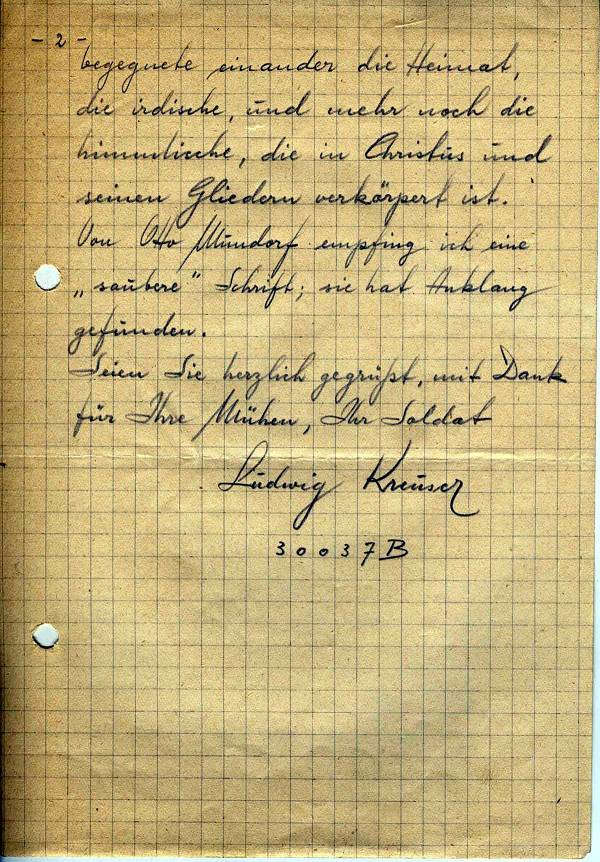 - 2 -
begegnete einander die Heimat,
die irdische, und mehr noch die
himmlische, die in Christus und
seinen Gliedern verkörpert ist.
Von Otto Mundorf empfing ich eine
„saubere" Schrift; sie hat Anklang
gefunden.
Seien Sie herzlich gegrüßt, mit Dank
für Ihre Mühen, Ihr Soldat
Ludwig Kreuser
30037B